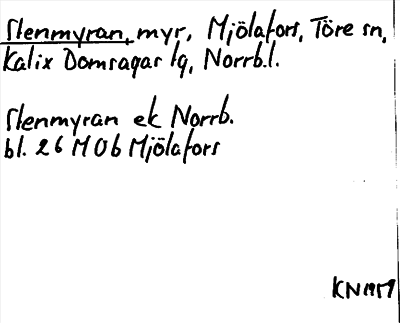 Stenmyran, myr, Mjölafors, Töre sn,
Kalix Domsagas lg, Norrb.l.
Stenmyran ek Norrb.
bl. 26 M 0b Mjölafors